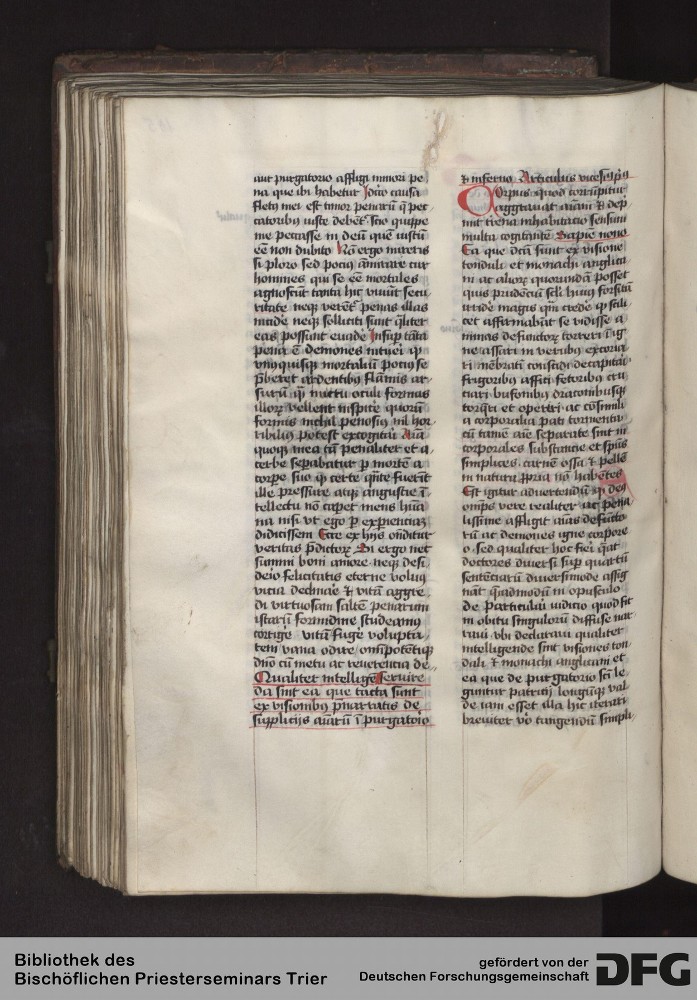 aut purgatorio affligi minori pe
na que ibi habetur Idcō causa
fletꝰ mei est timor penarū q̄ pec
catoribꝫ iuste debēt᷑ Scio quippe
me peccasse in deū quē iustū
eē non dubito Nō ergo mireris
si ploro sed pociꝰ admirare cur
homines qui se eē mortales
agnoscūt tanta hic viuūt secu
ritate neqꝫ verēt᷑ penas illas
incide neqꝫ solliciti sunt qͣliter
eas possunt euade Insup tāta
pena ē demones intueri ꝙ
vnusquisqꝫ mortaliū pociꝰ se
p̄beret ardentibꝫ flāmis ar
surū
illoꝝ vellent inspice quorū
formis nichil penosiꝰ nil hor
ribiliꝰ potest excogitari Aīa
quoqꝫ mea tū penaliter et a
cerbe sepabatur ꝑ mortē a
corpe suo ꝙ certe qͣnte fuerīt
ille pressure atqꝫ angustie ī
tellectu nō capet mens huma
na nisi vt ego ꝑ expienciā
didicissem Ecce ex hijs ondit᷑
veritas p̄dictoꝝ Si ergo nec
summi boni amore neqꝫ desi
derio felicitatis eterne volumꝰ
vicia declinare et vitā aggre
di virtuosam saltē penarum
istarū formidine studeamꝰ
corrige vitā fuge volupta
tem vana odire omīpotētiqꝫ
dn̄o cū metu ac reuerencia de
Qualiter intellige seruire
da sint ea que tacta sunt
ex visionibꝫ p̄narratis de
supplicijs aīarū ī purgatorio
et inferno Articulus vicesimꝰ
Corpus quod corrūpitur
aggrauat aīam et dep
mit trena inhabitacio sensum
multa cogitantē Sapie nono
Ea que dc̄a sunt ex visione
tondali et monachi anglica
ni ac alioꝝ quorundā posset
quis prudenciū scl̄i huiꝰ forsitā
ꝙ scili
cet affirmabāt se vidisse a
nimas defunctoꝝ torreri ī ig
ne assari in veribꝫ excoria
ri mēbratī conscidi decapitari
frigoribꝫ affici fetoribꝫ cru
ciari bufonibꝫ draconibusqꝫ
torqueri et operiri ac cōsimili
a corporalia pati tormenta
cū tamē aīe separate sint in
corporales substancie et spūs
simplices carnē ossa et pellē
in natura ꝓpria nō habētes
Est igitur aduertendū ꝙ deꝰ
omps vere realiter ac pena
lissime affligit aīas defūcto
rū ac demones igne corpore
o sed qualiter hoc fiet q̄rāt
doctores diuersi sup quartū
sentenciarū diuersimode assig
nāt quēadmodū in opusculo
de particulari iudicio quod fit
in obitu singulorū diffuse nar
raui vbi declaraui qualiter
intelligende sint visiones ton
dali et monachi anglicani et
ea que de purgatorio sc̄i le
guntur patricij longūqꝫ val
de iam esset illa hic iterari
breuiter vo tangendū simpli
Bibliothek des
Bischöflichen Priesterseminars Trier
gefördert von der
Deutschen Forschungsgemeinschaft
DFG